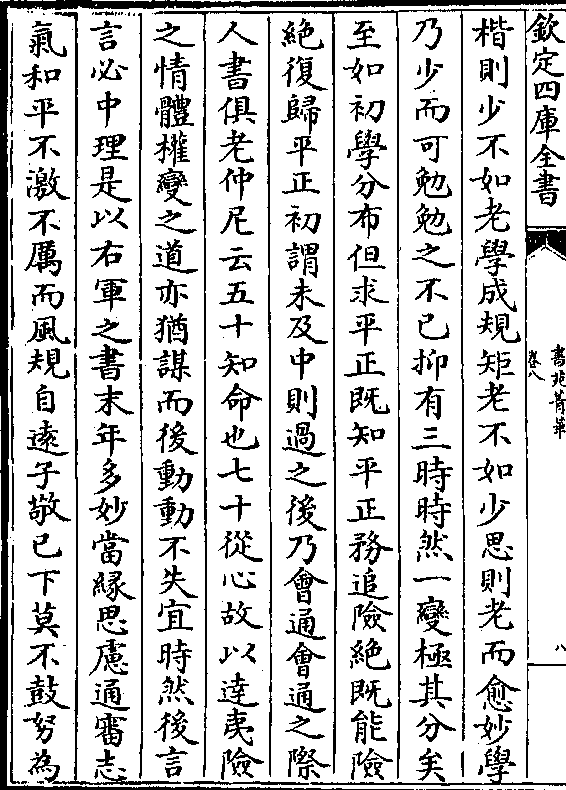 欽定四庫全書
書苑菁華
卷八
八
楷則少不如老學成規矩老不如少思則老而愈妙學
乃少而可勉勉之不已抑有三時時然一變極其分矣
至如初學分布但求平正既知平正務追險絶既能險
絶復歸平正初謂未及中則過之後乃㑹通㑹通之際
人書俱老仲尼云五十知命也七十從心故以達夷險
之情體權變之道亦猶謀而後動動不失宜時然後言
言必中理是以右軍之書末年多妙當緣思慮通審志
氣和平不激不厲而風規自逺子敬已下莫不鼓努為